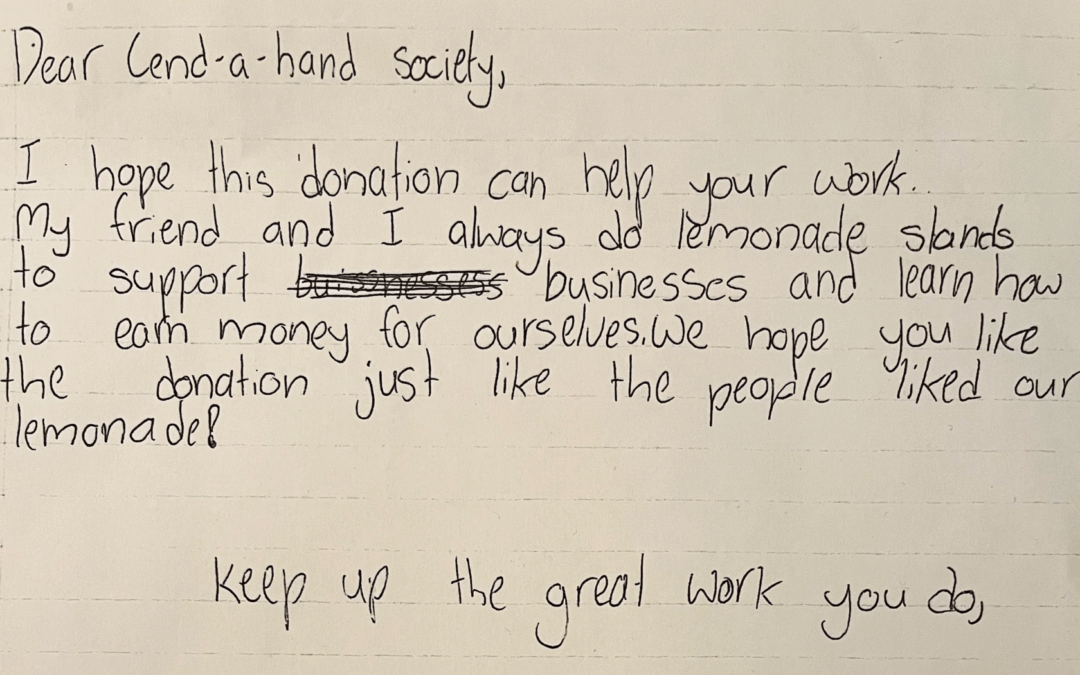 Dear Lend-a-hand society,
I hope this donation can help your work..
My friend and I always do lemonade stands
to support buissnessess businesses and learn how
to earn money for ourselves.We hope you like
the donation just like the people liked our
lemonade!
keep up the great work you do,